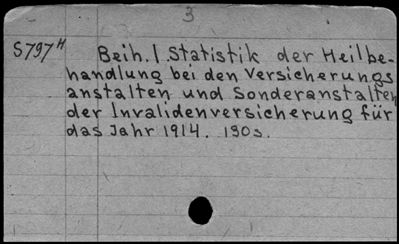 3
S797H Beih. 1. Statistik der Heilbe-
handlung bei den Versicherungs
anstalten und Sonderanstalten
der Invalidenversicherung für
das Jahr 1914. 190s.